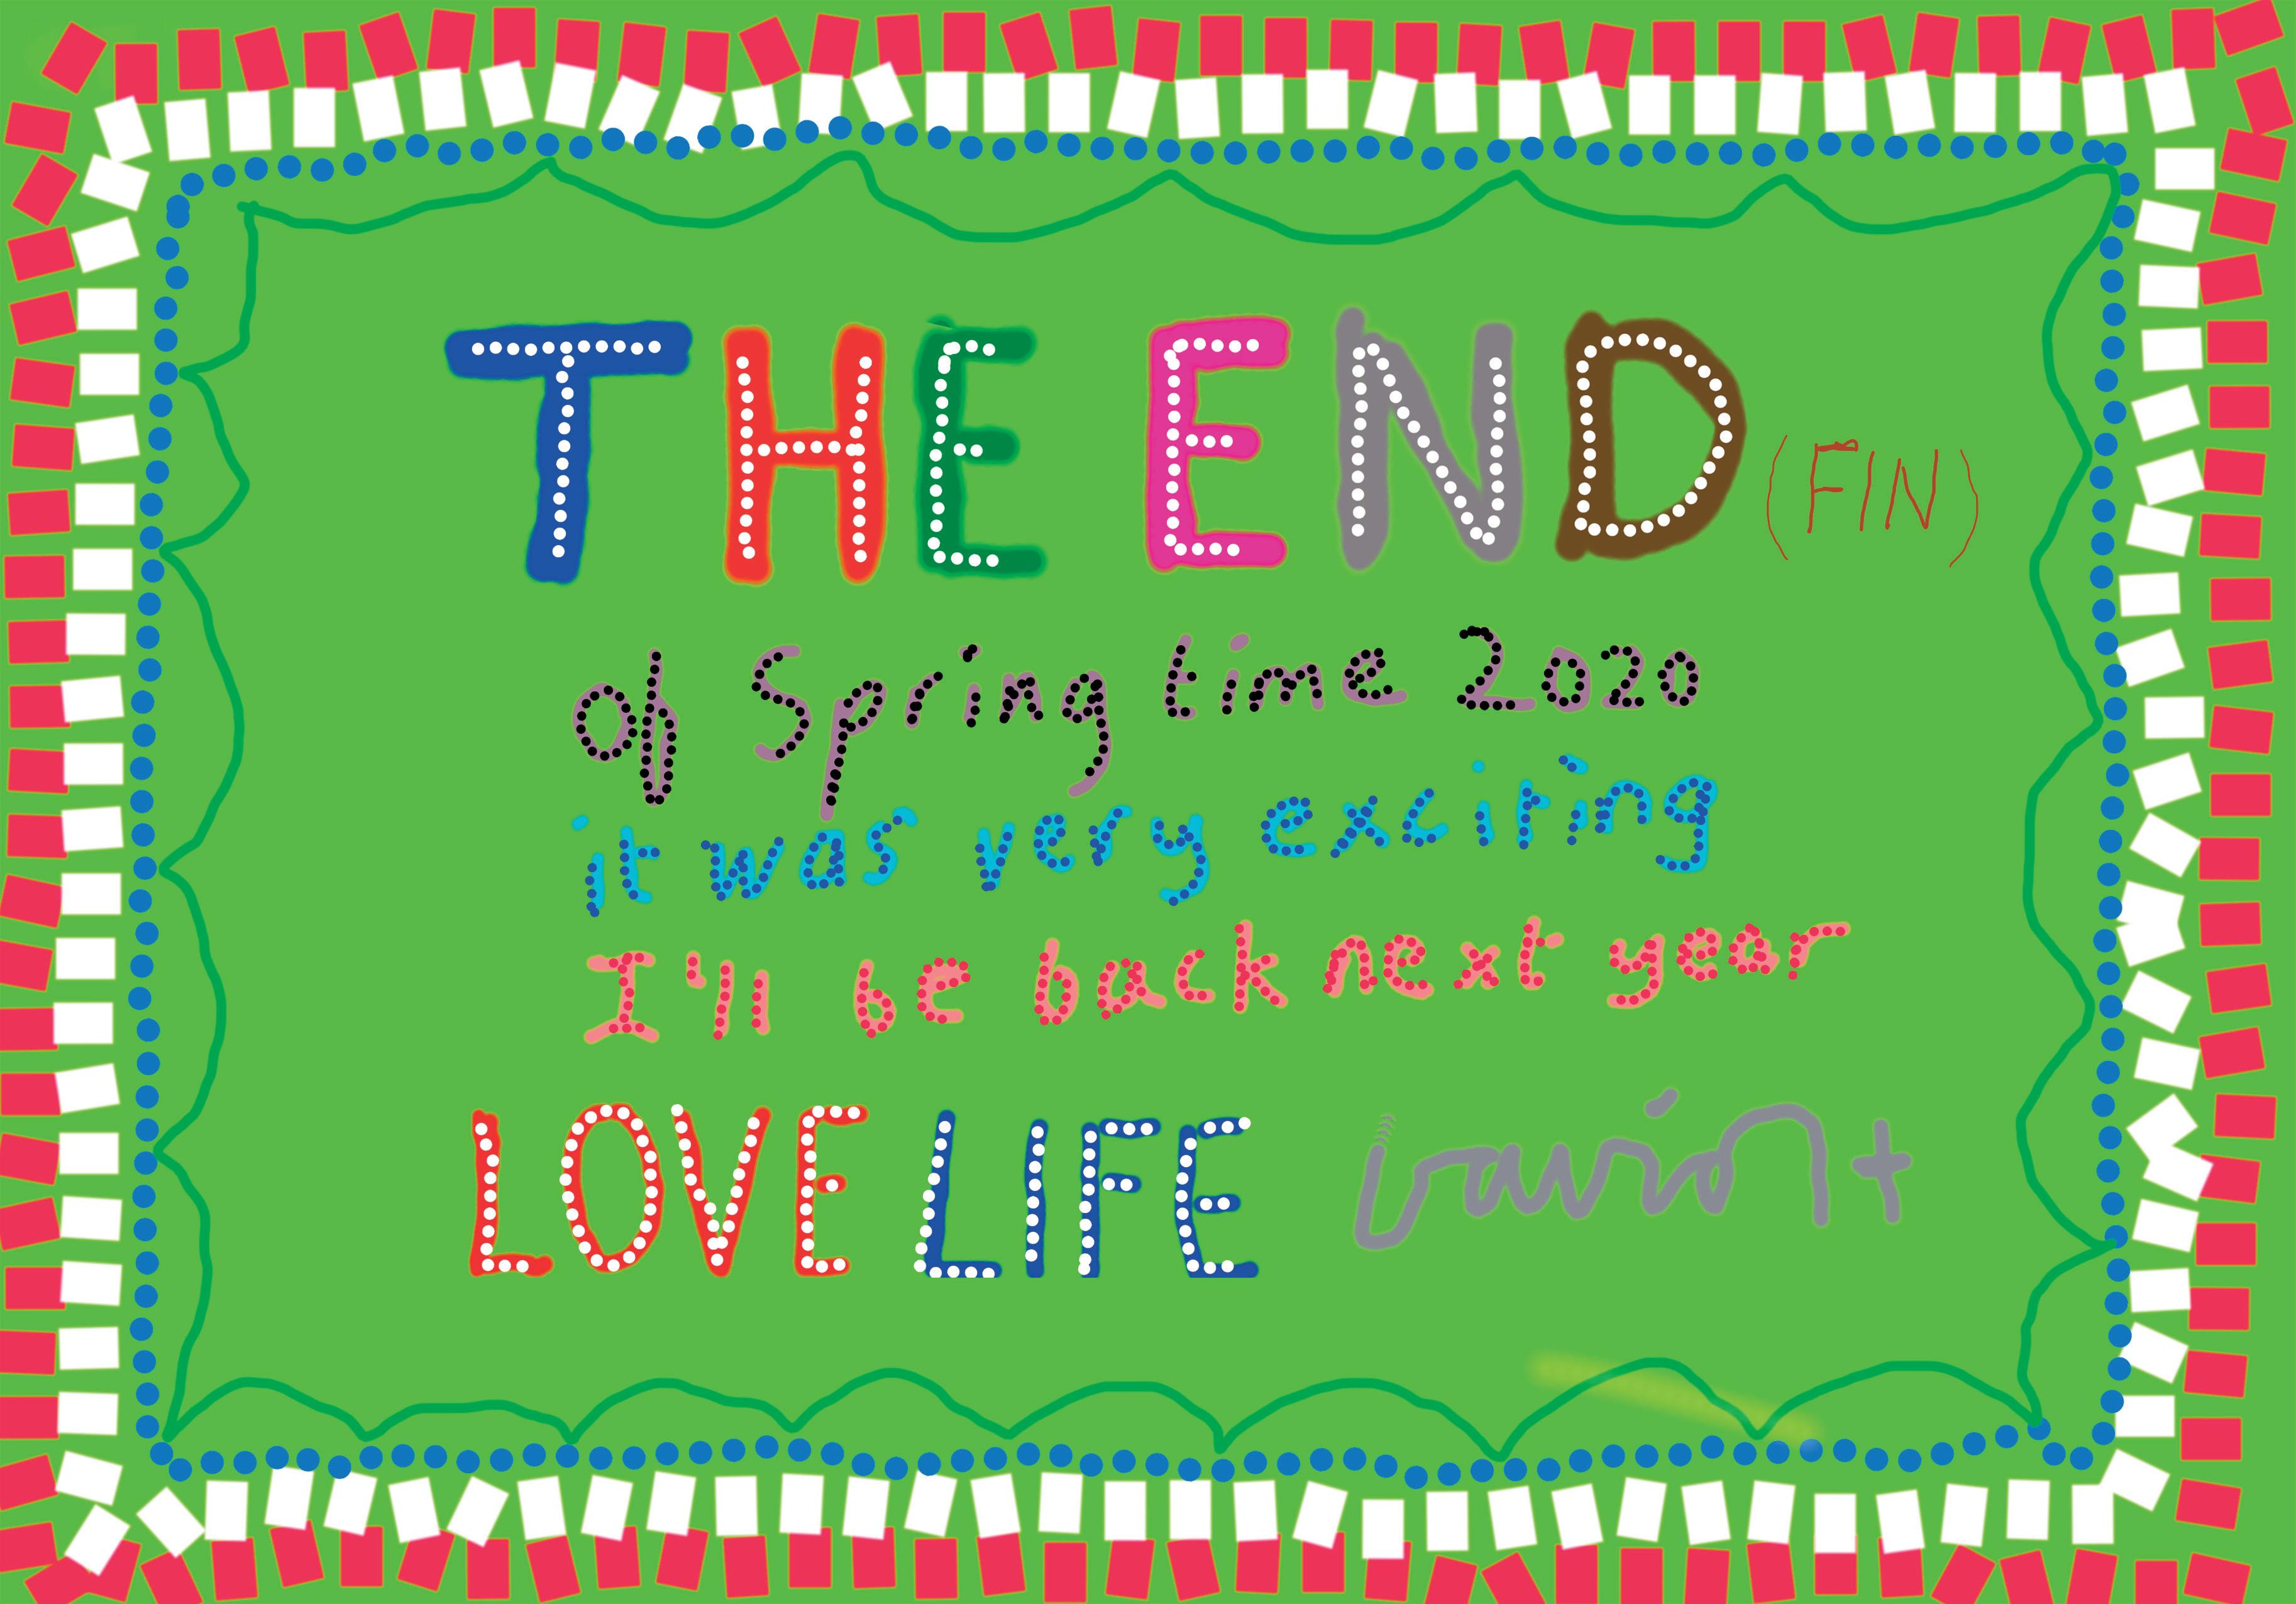 THE END (FIN)
of Spring time 2020
it was very exciting
I'll be back next year
LOVE LIFE David H